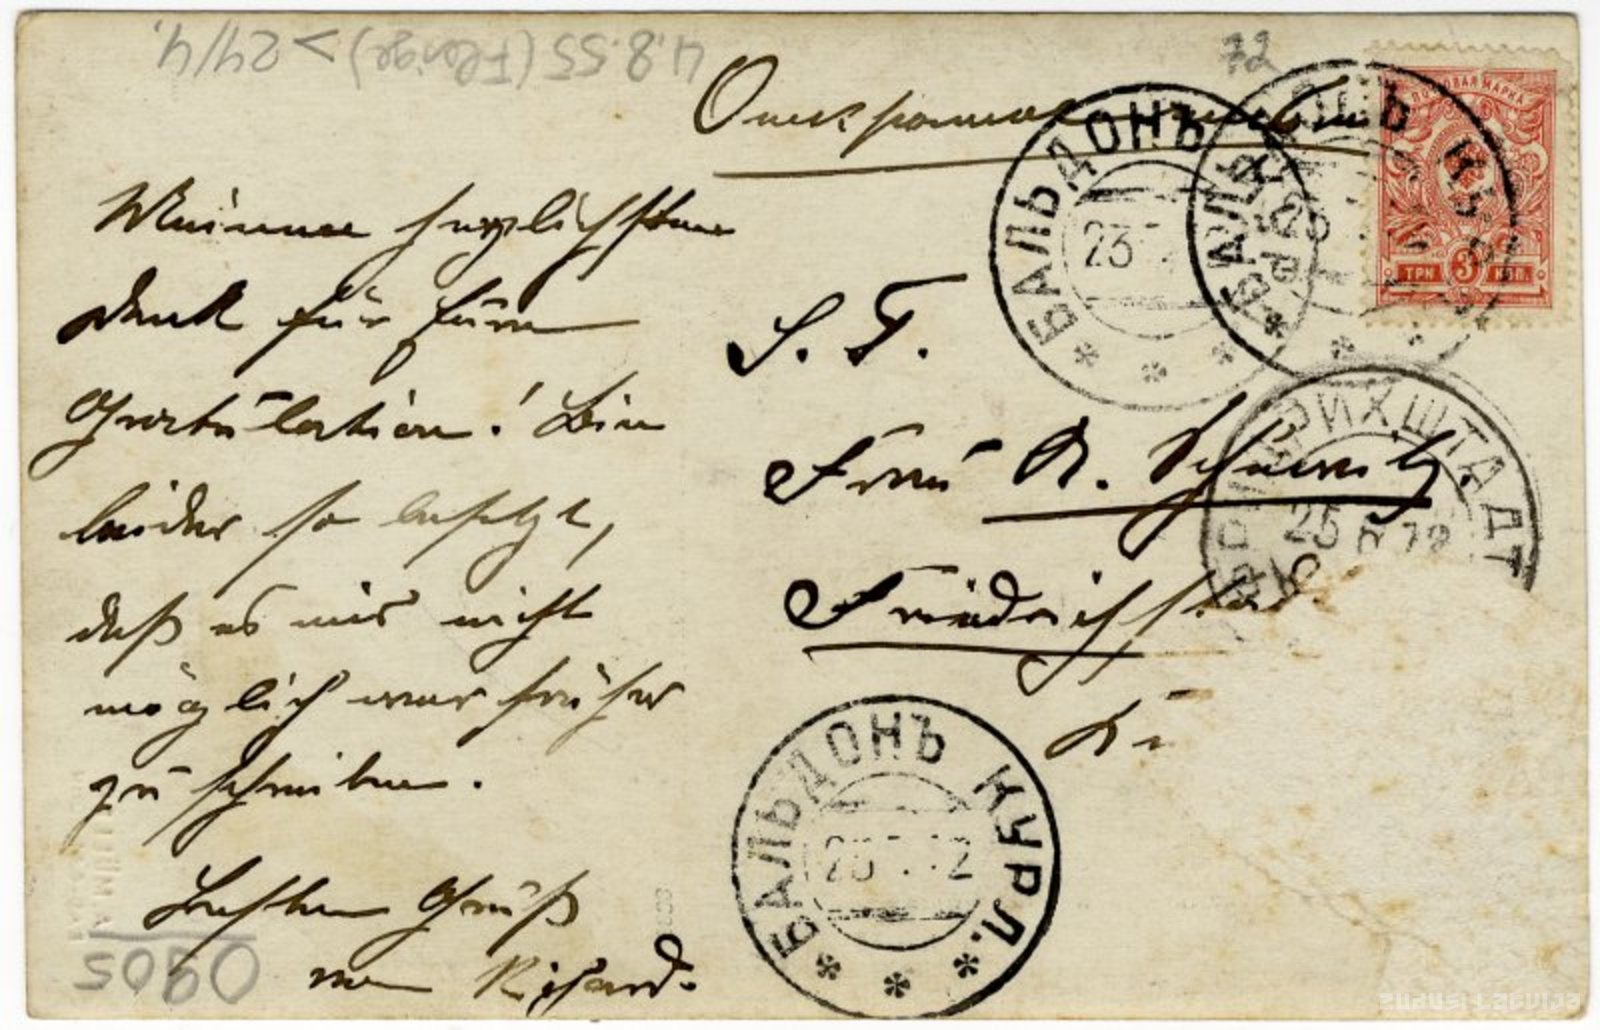 4.8.55 (Florige) > 24/4.
72
Открытое письмо
Meinen herzlichsten
Dank für Eure
Gratulation! Bin
leider so besetzt,
daß es mir nicht
möglich war früher
zu schreiben.
Besten Gruß
von Richard.
S. T.
Frau R. Schewitz.
Friedrichstad
К
ПОЧТОВАЯ МАРКА
ТРИ 3 КОП.
БАЛЬДОНЪ
23
БАЛЬДОНЪ КУРЛ.
ФРИДРИХШТАДТ
25 12
БАЛЬДОНЪ КУРЛ.
12
5090
zudusi Latvija